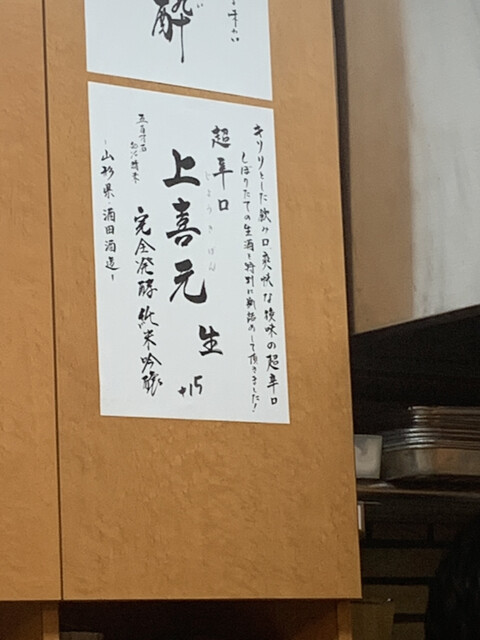 酔
キリリとした飲み口、爽快な後味の超辛口
しぼりたての生酒を特別に瓶詰めして頂きました!
超辛口
上喜元
じょうきげん
生
+15
完全発酵純米吟醸
五百万石
50%精米
-山形県・酒田酒造-